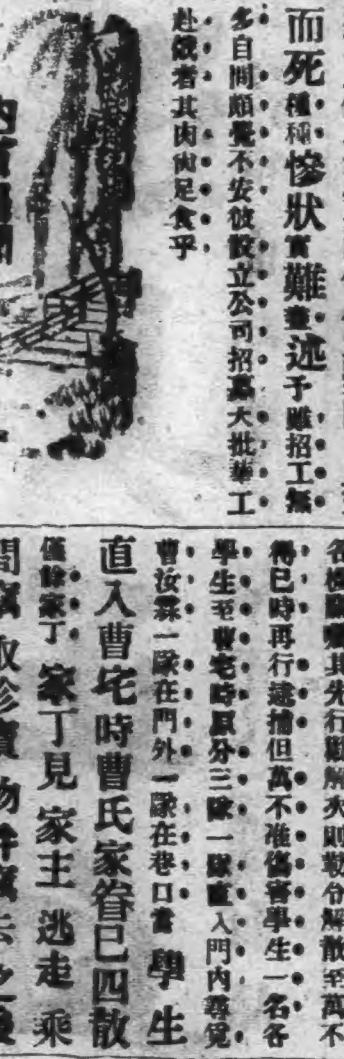 而死種種慘狀實難盡述予雖招工無
多自問頗覺不安彼設立公司招募大批華工
赴俄者其肉尚足食乎
其先行勸解夫則勒令解散至萬不
得已時再行逮捕但萬不准傷害學生一名各
學生至曹宅時原分三隊一隊直入門內尋覓
曹汝霖一隊在門外一隊在巷口當學生
直入曹宅時曹氏家眷已四散
僅餘家丁家丁見家主逃走乘
間竊取珍寶物